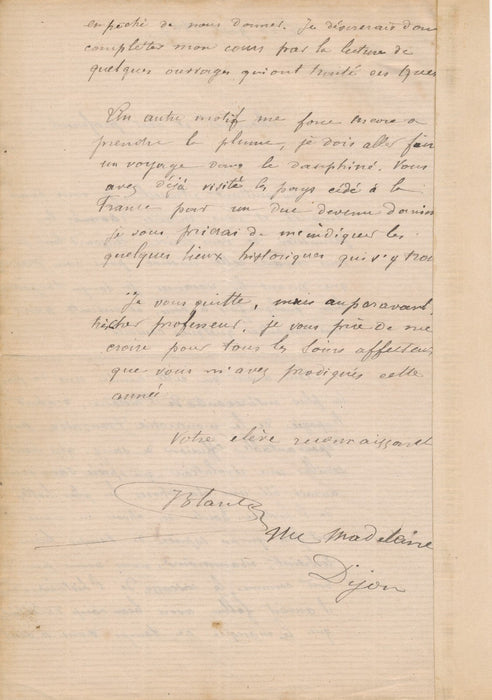 empêché de nous donner. Je désirerais don
completter mon cours par la lecture de
quelques ouvrages qui ont traité des Ques
Un autre motif me force encore a
prendre la plume, je dois aller fair
un voyage dans le dauphiné. Vous
avez déjà visité les pays cédé à la
France par un Duc devenu domin
je vous prierai de me indiquer les
quelques lieux historiques qui s'y trou
Je vous quitte, mais auparavant
cher professeur, je vous prie de me
croire pour tous les soins affectueu
que vous m'avez prodigués cette
année
Votre élève reconnaissant
rue Madeleine
Dijon